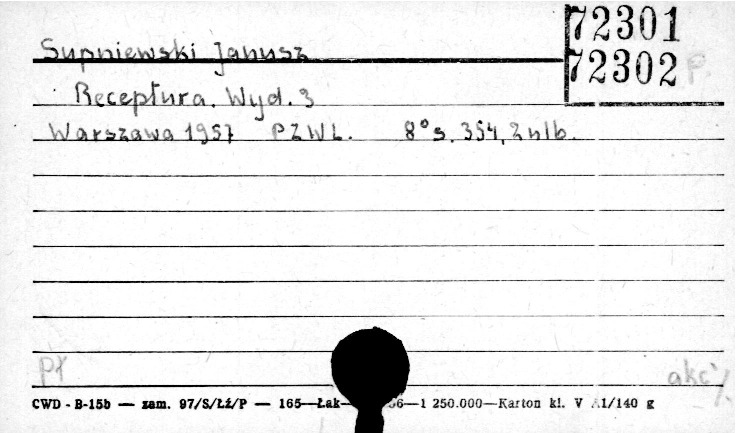 72301
72302 P.
Supniewski Janusz
Receptura. Wyd. 3
Warszawa 1957 PZWL. 8° s. 354, 2 nlb.
pł
akc
CWD - B-15b — zam. 97/S/Łź/P — 165—Łak— 66—1 250.000—Karton kl. V A1/140 g